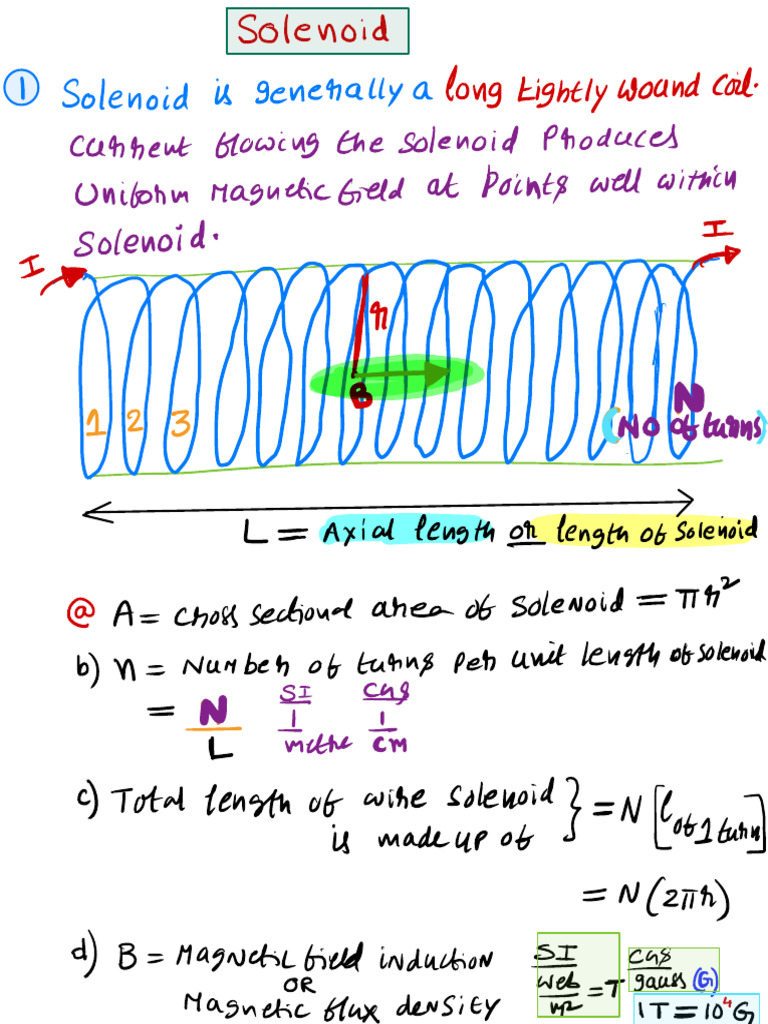 Solenoid
① Solenoid is generally a long tightly wound coil.
Current flowing the solenoid Produces
Uniform Magnetic field at Points well within
Solenoid.
I
I
r
B
1 2 3
N
(No of turns)
L = Axial length or length of Solenoid
@ A = cross sectional area of Solenoid = πr²
b) n = Number of turns per unit length of solenoid
= N/L SI 1/metre cgs 1/cm
c) Total length of wire solenoid
is made up of } = N [l of 1 turn]
= N(2πr)
d) B = Magnetic field induction
OR
Magnetic flux density
SI web/m² = T
cgs gauss (G)
1T = 10⁴G